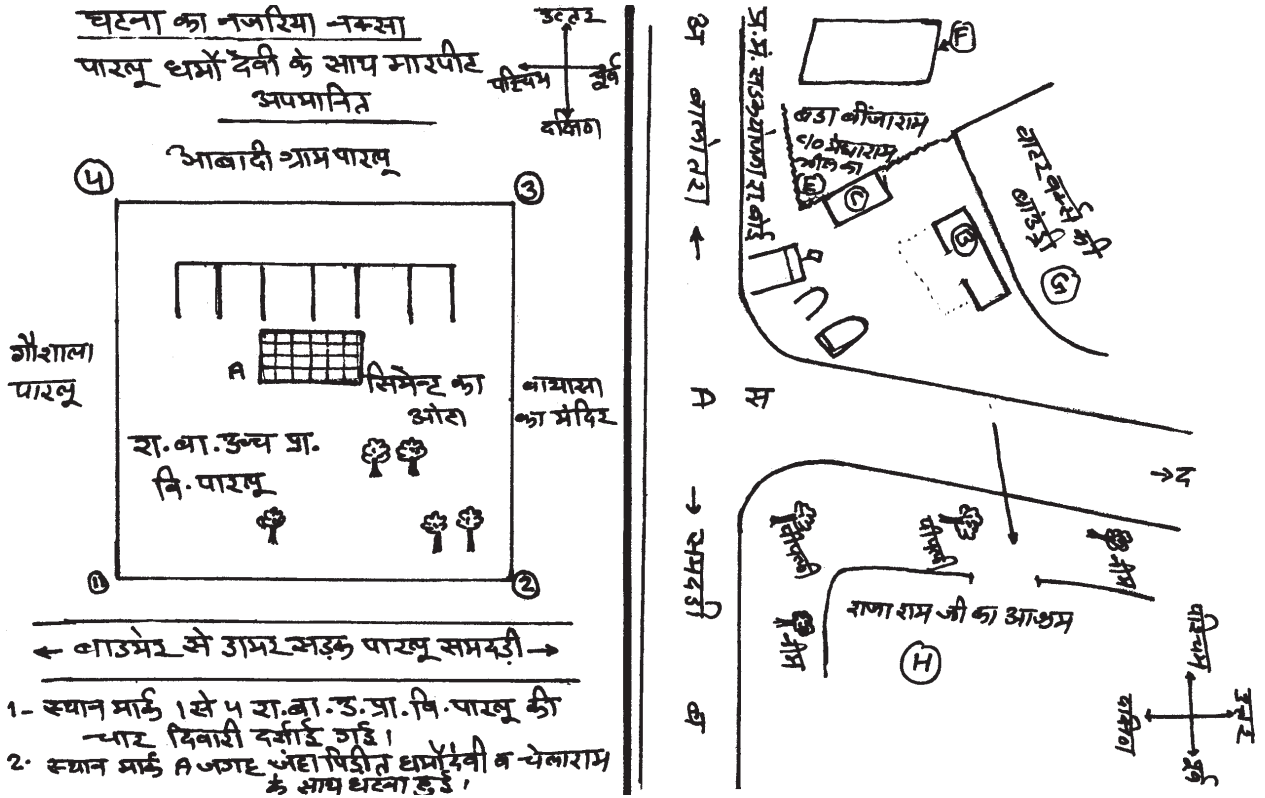 घटना का नजरिया नक्सा
पारलू धर्मो देवी के साथ मारपीट
अपमानित
उत्तर
पश्चिम
पूर्व
दक्षिण
आबादी ग्राम पारलू
4
3
गौशाला
पारलू
A
सिमेन्ट का
ओटा
बायासा
का मंदिर
रा.बा.उच्च प्रा.
वि.पारलू
11
2
← बाडमेर से डामर सड़क पारलू समदड़ी →
1- स्थान मार्क 1 से 4 रा.बा.उ.प्रा.वि.पारलू की
चार दिवारी दर्शाई गई।
2. स्थान मार्क A जगह जंहा पिडीत धर्मोदेवी व चेलाराम
के साथ घटना हुई।
अ
बालोतरा ←
F
बडा बींजाराम
C/O मेघाराम
भील का
E
C
B
वाटर वर्क्स की
बांउड्री
G
D
स
→ द
→ समदडी
ब
पीपली
पीपली
नीम
नीम
राजा राम जी का आश्रम
H
पश्चिम
उत्तर
दक्षिण
पूर्व